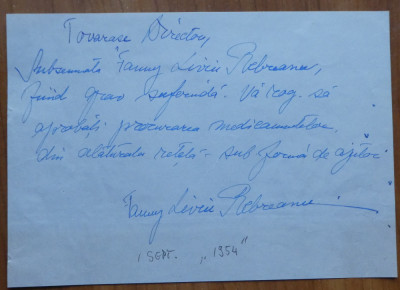 Tovarase Director,
Subsemnata Fanny Liviu Rebreanu,
fiind grav suferindă. Vă rog. să
aprobați procurarea medicamentelor
din alăturata rețetă - sub formă de ajutor
Fanny Liviu Rebreanu.
1 SEPT. „1954"